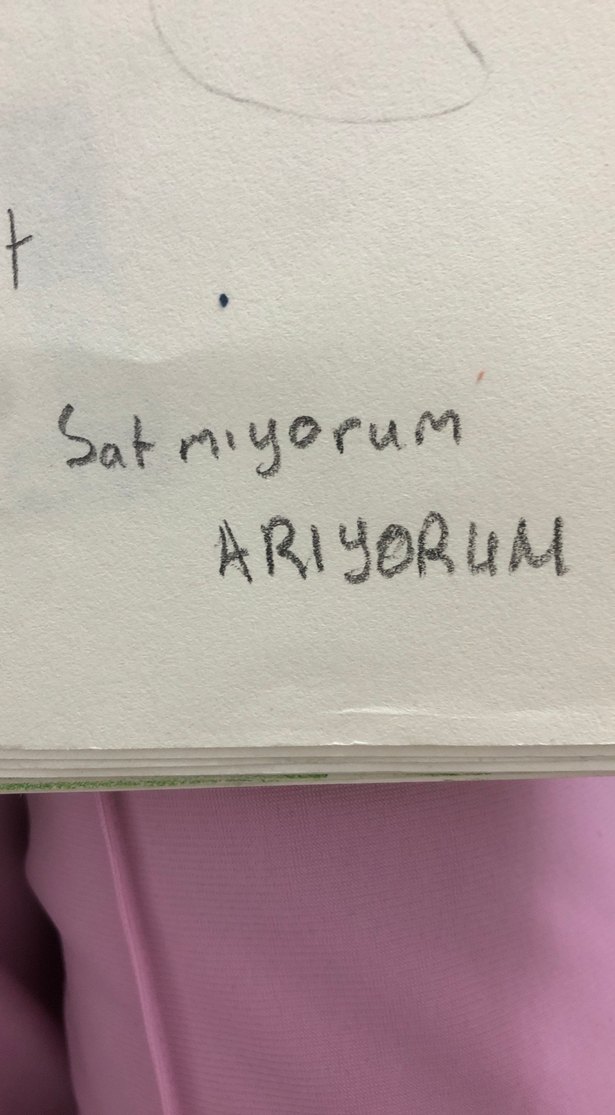 t
Satmıyorum
ARIYORUM